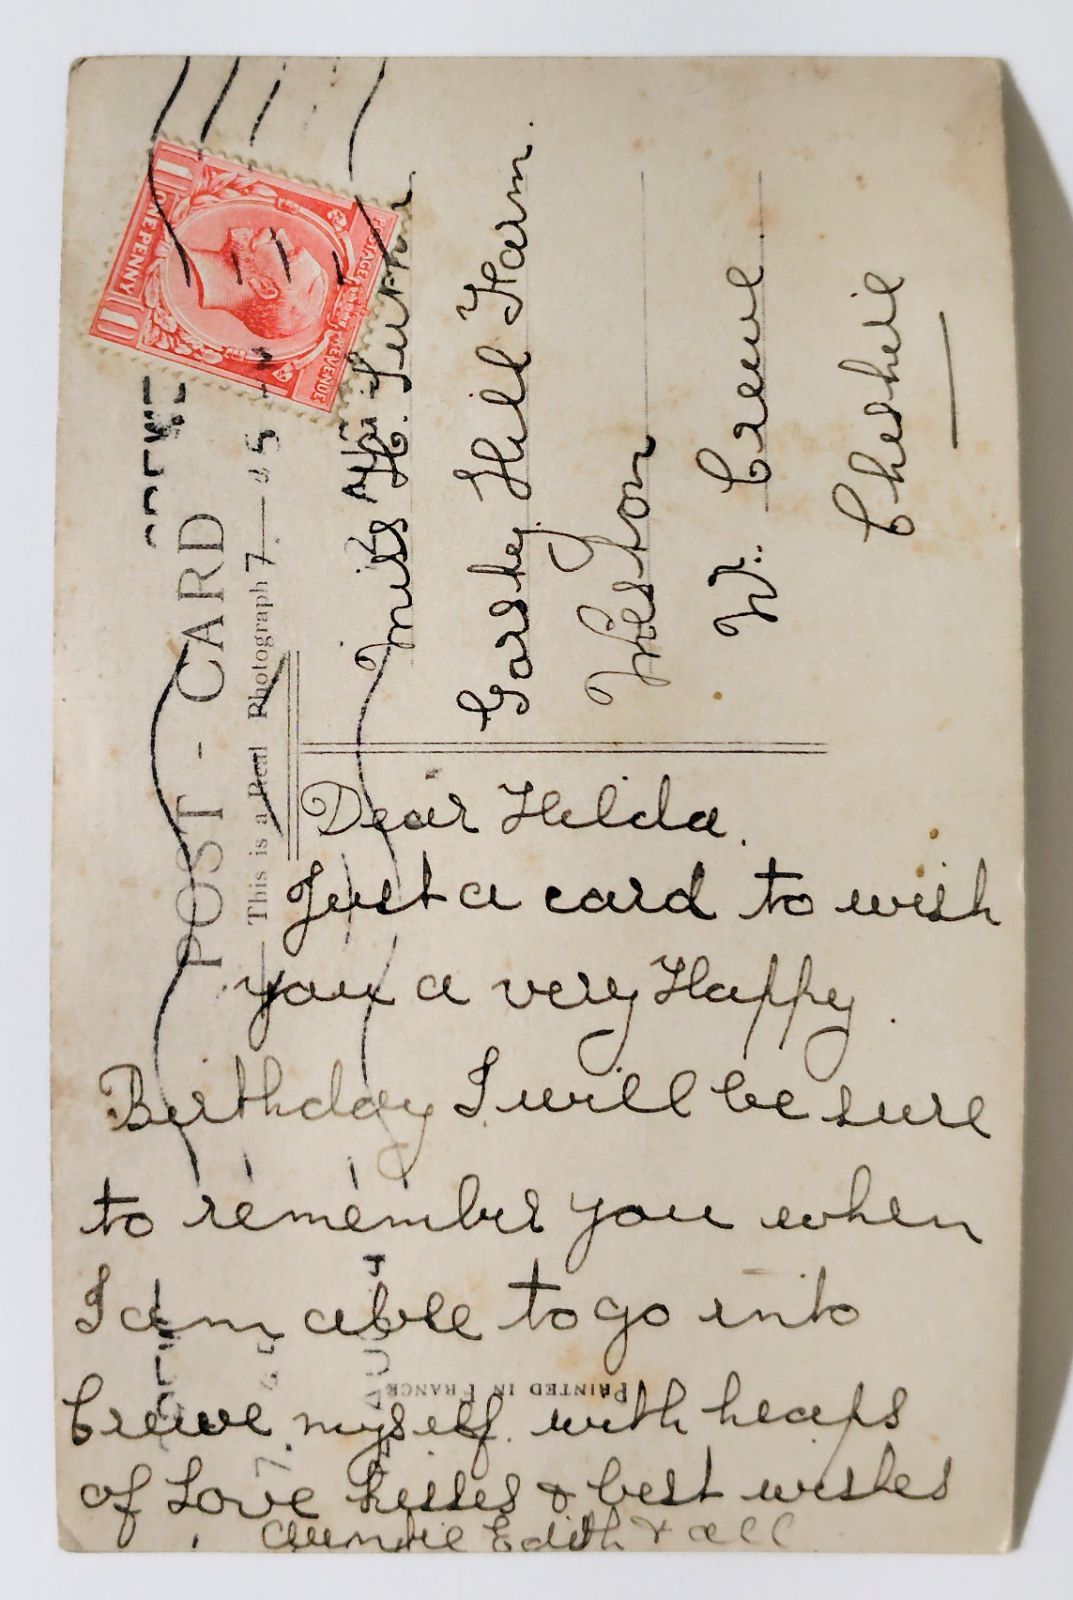 POST - CARD
This is a Real Photograph
Miss H.
Gorsty Hill Farm.
Weston
Nr. Crewe
Cheshire
Dear Hilda.
Just a card to wish
you a very Happy
Birthday I will be sure
to remember you when
I am able to go into
Crewe myself. with heaps
of Love kisses & best wishes
Auntie Edith & all
PRINTED IN FRANCE
ONE PENNY
POSTAGE REVENUE
1
1